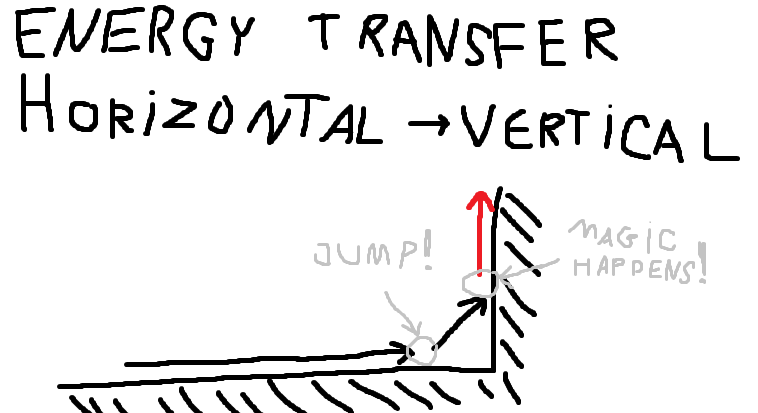 ENERGY TRANSFER
HORiZONTAL → VERTiCAL
JUMP!
MAGiC
HAPPENS!